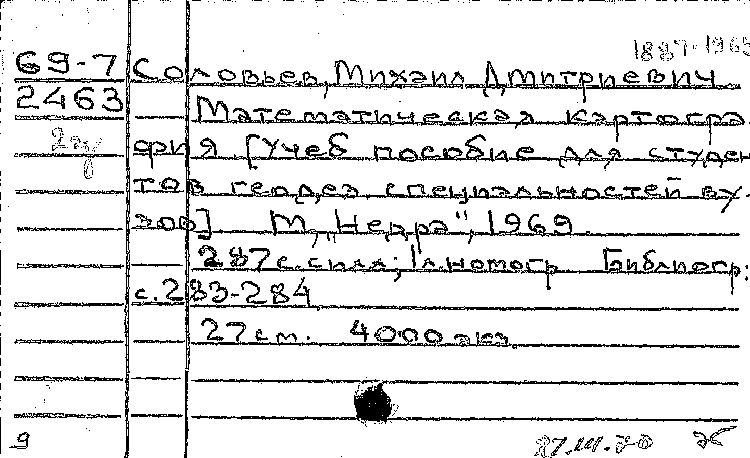 1887-1965
69-7 Соловьев, Михаил Дмитриевич
2463 Математическая картогра-
2ц фия [Учеб пособие для студен
тов геодез. специальностей ву-
зов] М, "Недра", 1969.
287 с. с илл; 1 л. номогр Библиогр:
с. 283-284
27 см. 4000 экз.
9 27.III.70